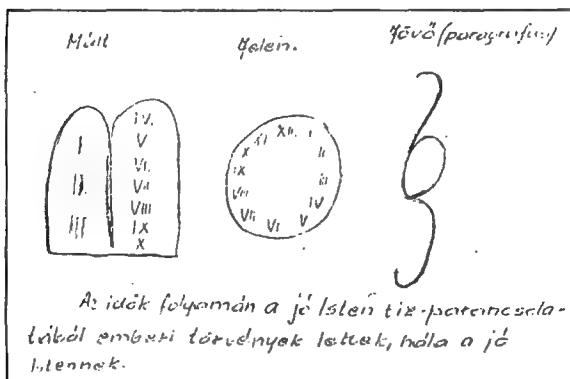 Múlt Jelen. Jövő (paragrafus)
I
II.
III
IV.
V
VI.
VII
VIII
IX
X
XII. I II III IV V VI VII VIII IX X XI
Az idők folyamán a jó Isten tíz-parancsola-
taiból emberi törvények lettek, hála a jó
Istennek.